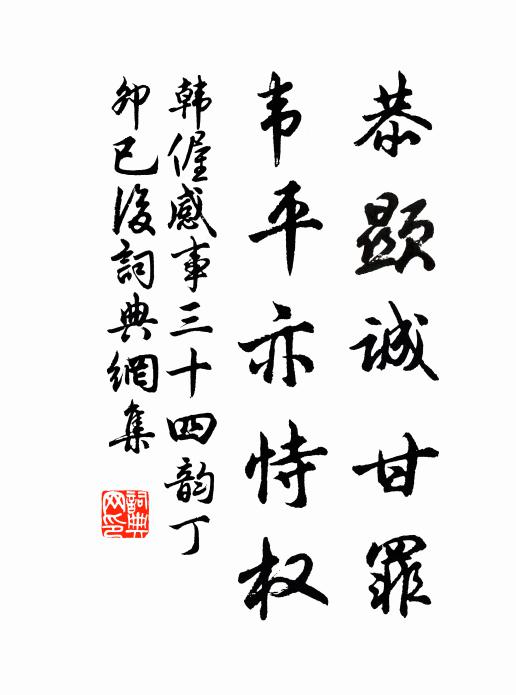 恭顯誠甘罪
韦平亦恃权
韩偓感事三十四韵丁
卯已後詞典網集
詞典网印